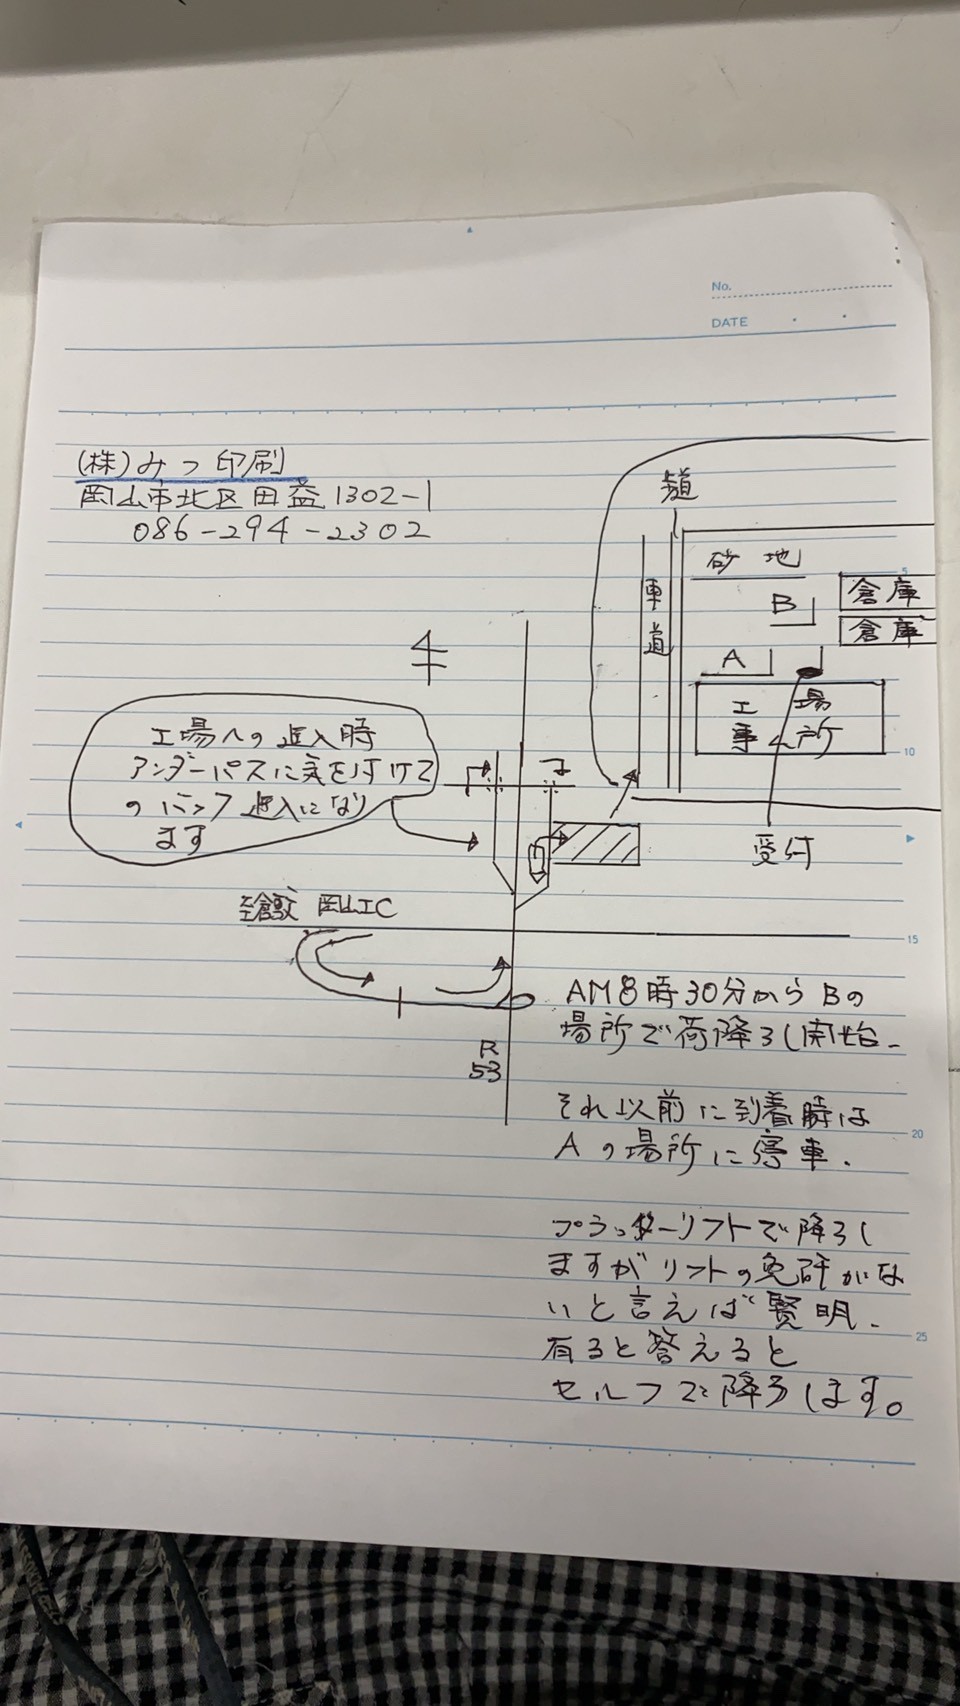 No.
DATE
(株)みつ印刷
岡山市北区田益1302-1
086-294-2302
歩道
車道
砂地
B
倉庫
倉庫
A
工場
事ム所
受付
工場への進入時
アンダーパスに気を付けて
のバック進入になり
ます
至倉敷 岡山IC
R
53
AM8時30分からBの
場所で荷降ろし開始.
それ以前に到着時は
Aの場所に停車.
プラッターリフトで降ろし
ますがリフトの免許がな
いと言えば賢明.
有ると答えると
セルフで降ろします。
5
10
15
20
25